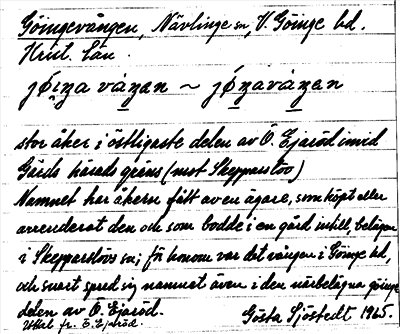 Göingevången, Nävlinge sn, V. Göinge hd.
Krist. län.
stor åker i östligaste delen av Ö. Ejaröd invid
Gärds härads gräns (mot Skepparslöv)
Namnet har åkern fått av en ägare, som köpt eller
arrenderat den och som bodde i en gård intill, belägen
i Skepparslövs sn; för honom var det vången i Göinge hd,
och snart spred sig namnet även i den närbelägna göinge
delen av Ö. Ejaröd.
Uttal fr. Ö. Ejaröd. Gösta Sjöstedt 1925.